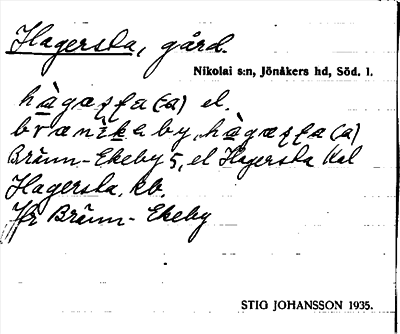 Hagersta, gård.
Nikolai s:n, Jönåkers hd, Söd. l.
hàgæʂʂa (a) el.
brænìkeby, hàgæʂʂa (a)
Bränn-Ekeby 5, el Hagersta kal
Hagersta, kb.
Jfr Bränn-Ekeby
STIG JOHANSSON 1935.